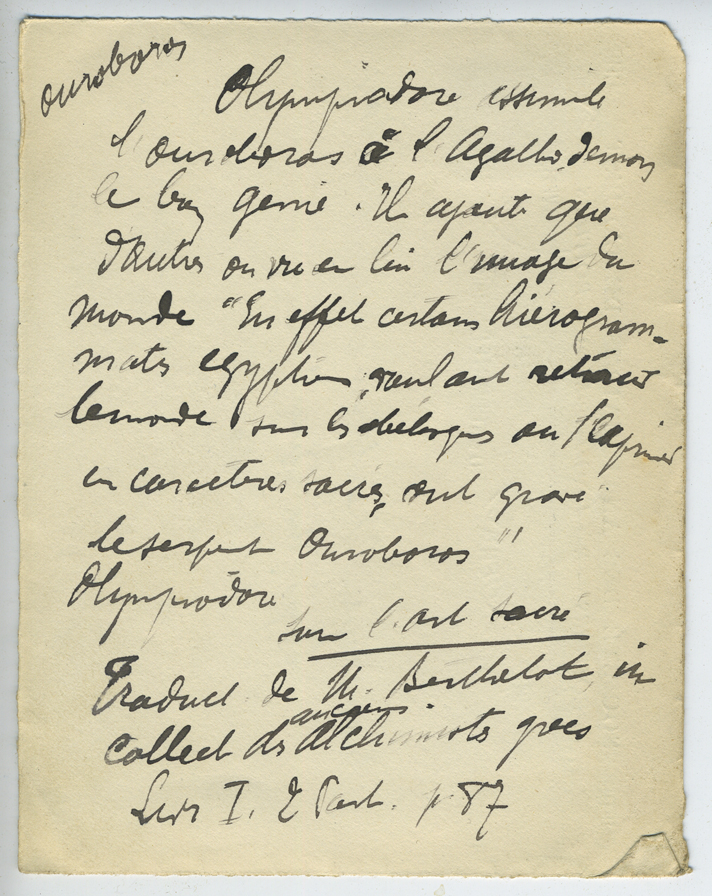 ouroboros
Olympiodore assimile
l'ouroboros à l'Agatho,demon
le bon genie. Il ajoute que
d'autres on vu en lui l'image du
monde "En effet certains hiérogram-
mates egyptiens, voulant retracer
le monde sur les obélisques ou
en caractères sacrés, ont gravé
le serpent Ouroboros"
Olympiodore
sur l'art sacré
Traduct de M. Berthelot, in
anciens
Collect des Alchimistes grecs
I. 2 Part. p 87